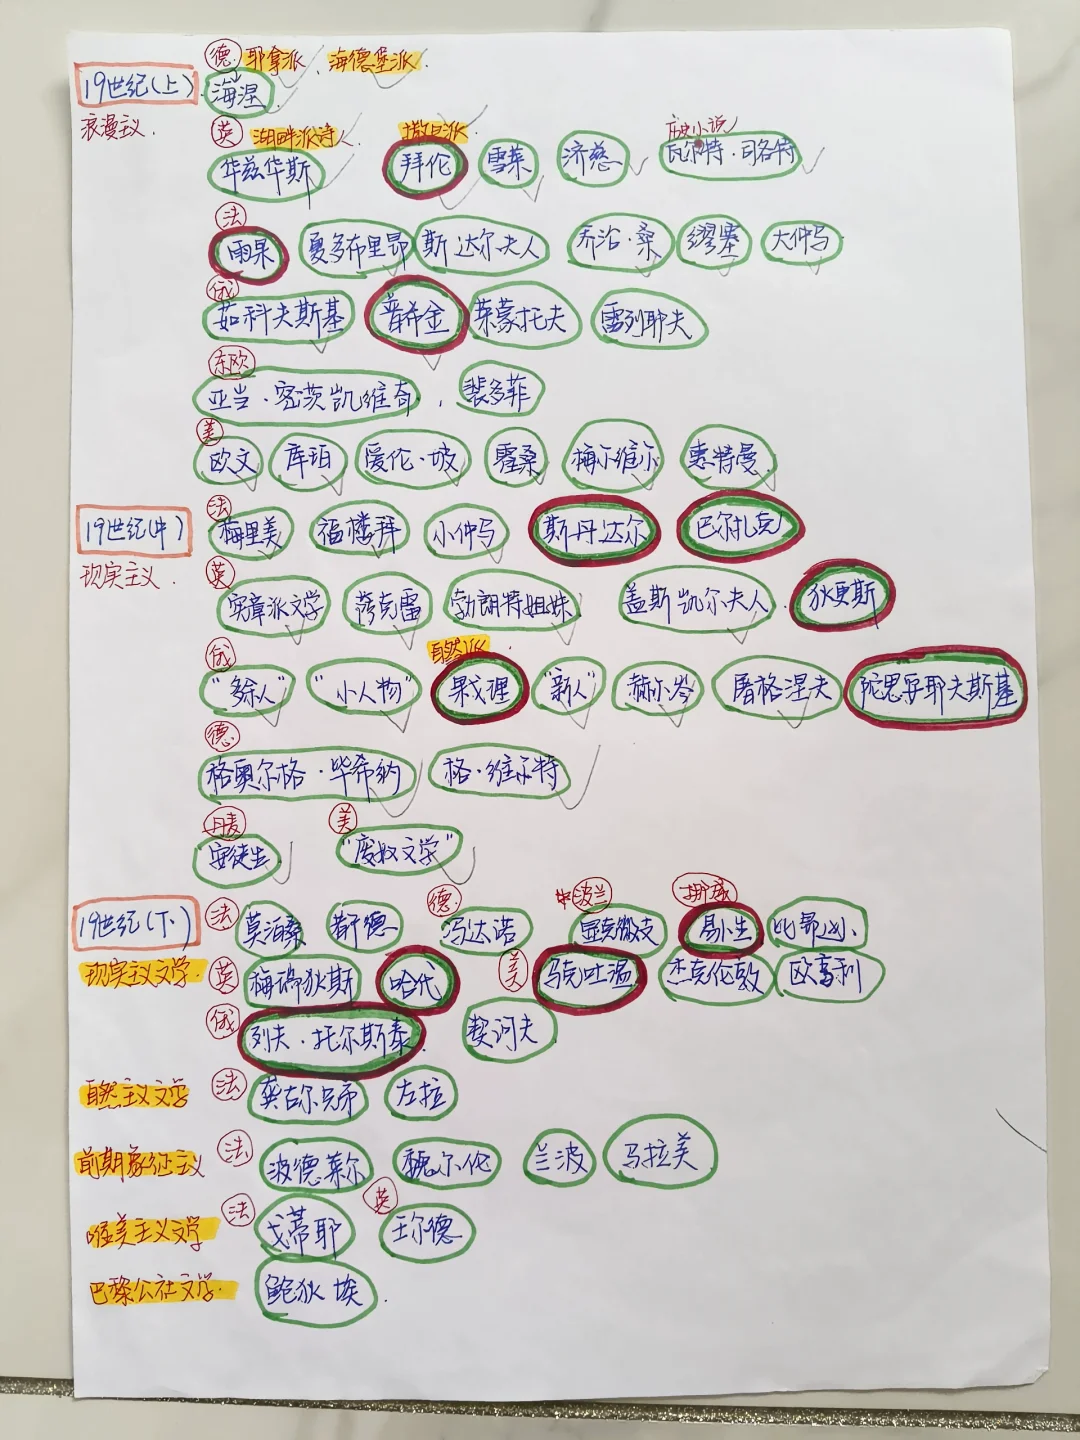 德 耶拿派、海德堡派
19世纪(上) 海涅
浪漫主义.
英 湖畔派诗人 撒旦派 历史小说
华兹华斯 拜伦 雪莱 济慈 瓦尔特·司各特
法
雨果 夏多布里昂 斯达尔夫人 乔治·桑 缪塞 大仲马
俄
茹科夫斯基 普希金 莱蒙托夫 雷列耶夫
东欧
亚当·密茨凯维奇, 裴多菲
美
欧文 库珀 爱伦·坡 霍桑 梅尔维尔 惠特曼
19世纪(中) 法 梅里美 福楼拜 小仲马 斯丹达尔 巴尔扎克
现实主义.
英 宪章派文学 萨克雷 勃朗特姐妹 盖斯凯尔夫人. 狄更斯
俄 自然派
"多余人" "小人物" 果戈理 "新人" 赫尔岑 屠格涅夫 陀思妥耶夫斯基
德
格奥尔格·毕希纳 格·维尔特
丹麦 美
安徒生 "废奴文学"
19世纪(下) 法 莫泊桑 都德 德 冯达诺 波兰 显克微支 挪威 易卜生 比昂逊
现实主义文学. 英 梅瑞狄斯 哈代 美 马克吐温 杰克伦敦 欧亨利
俄 列夫·托尔斯泰. 契诃夫
自然主义文学 法 龚古尔兄弟 左拉
前期象征主义 法 波德莱尔 魏尔伦 兰波 马拉美
唯美主义文学 法 戈蒂耶 英 王尔德
巴黎公社文学. 鲍狄埃.